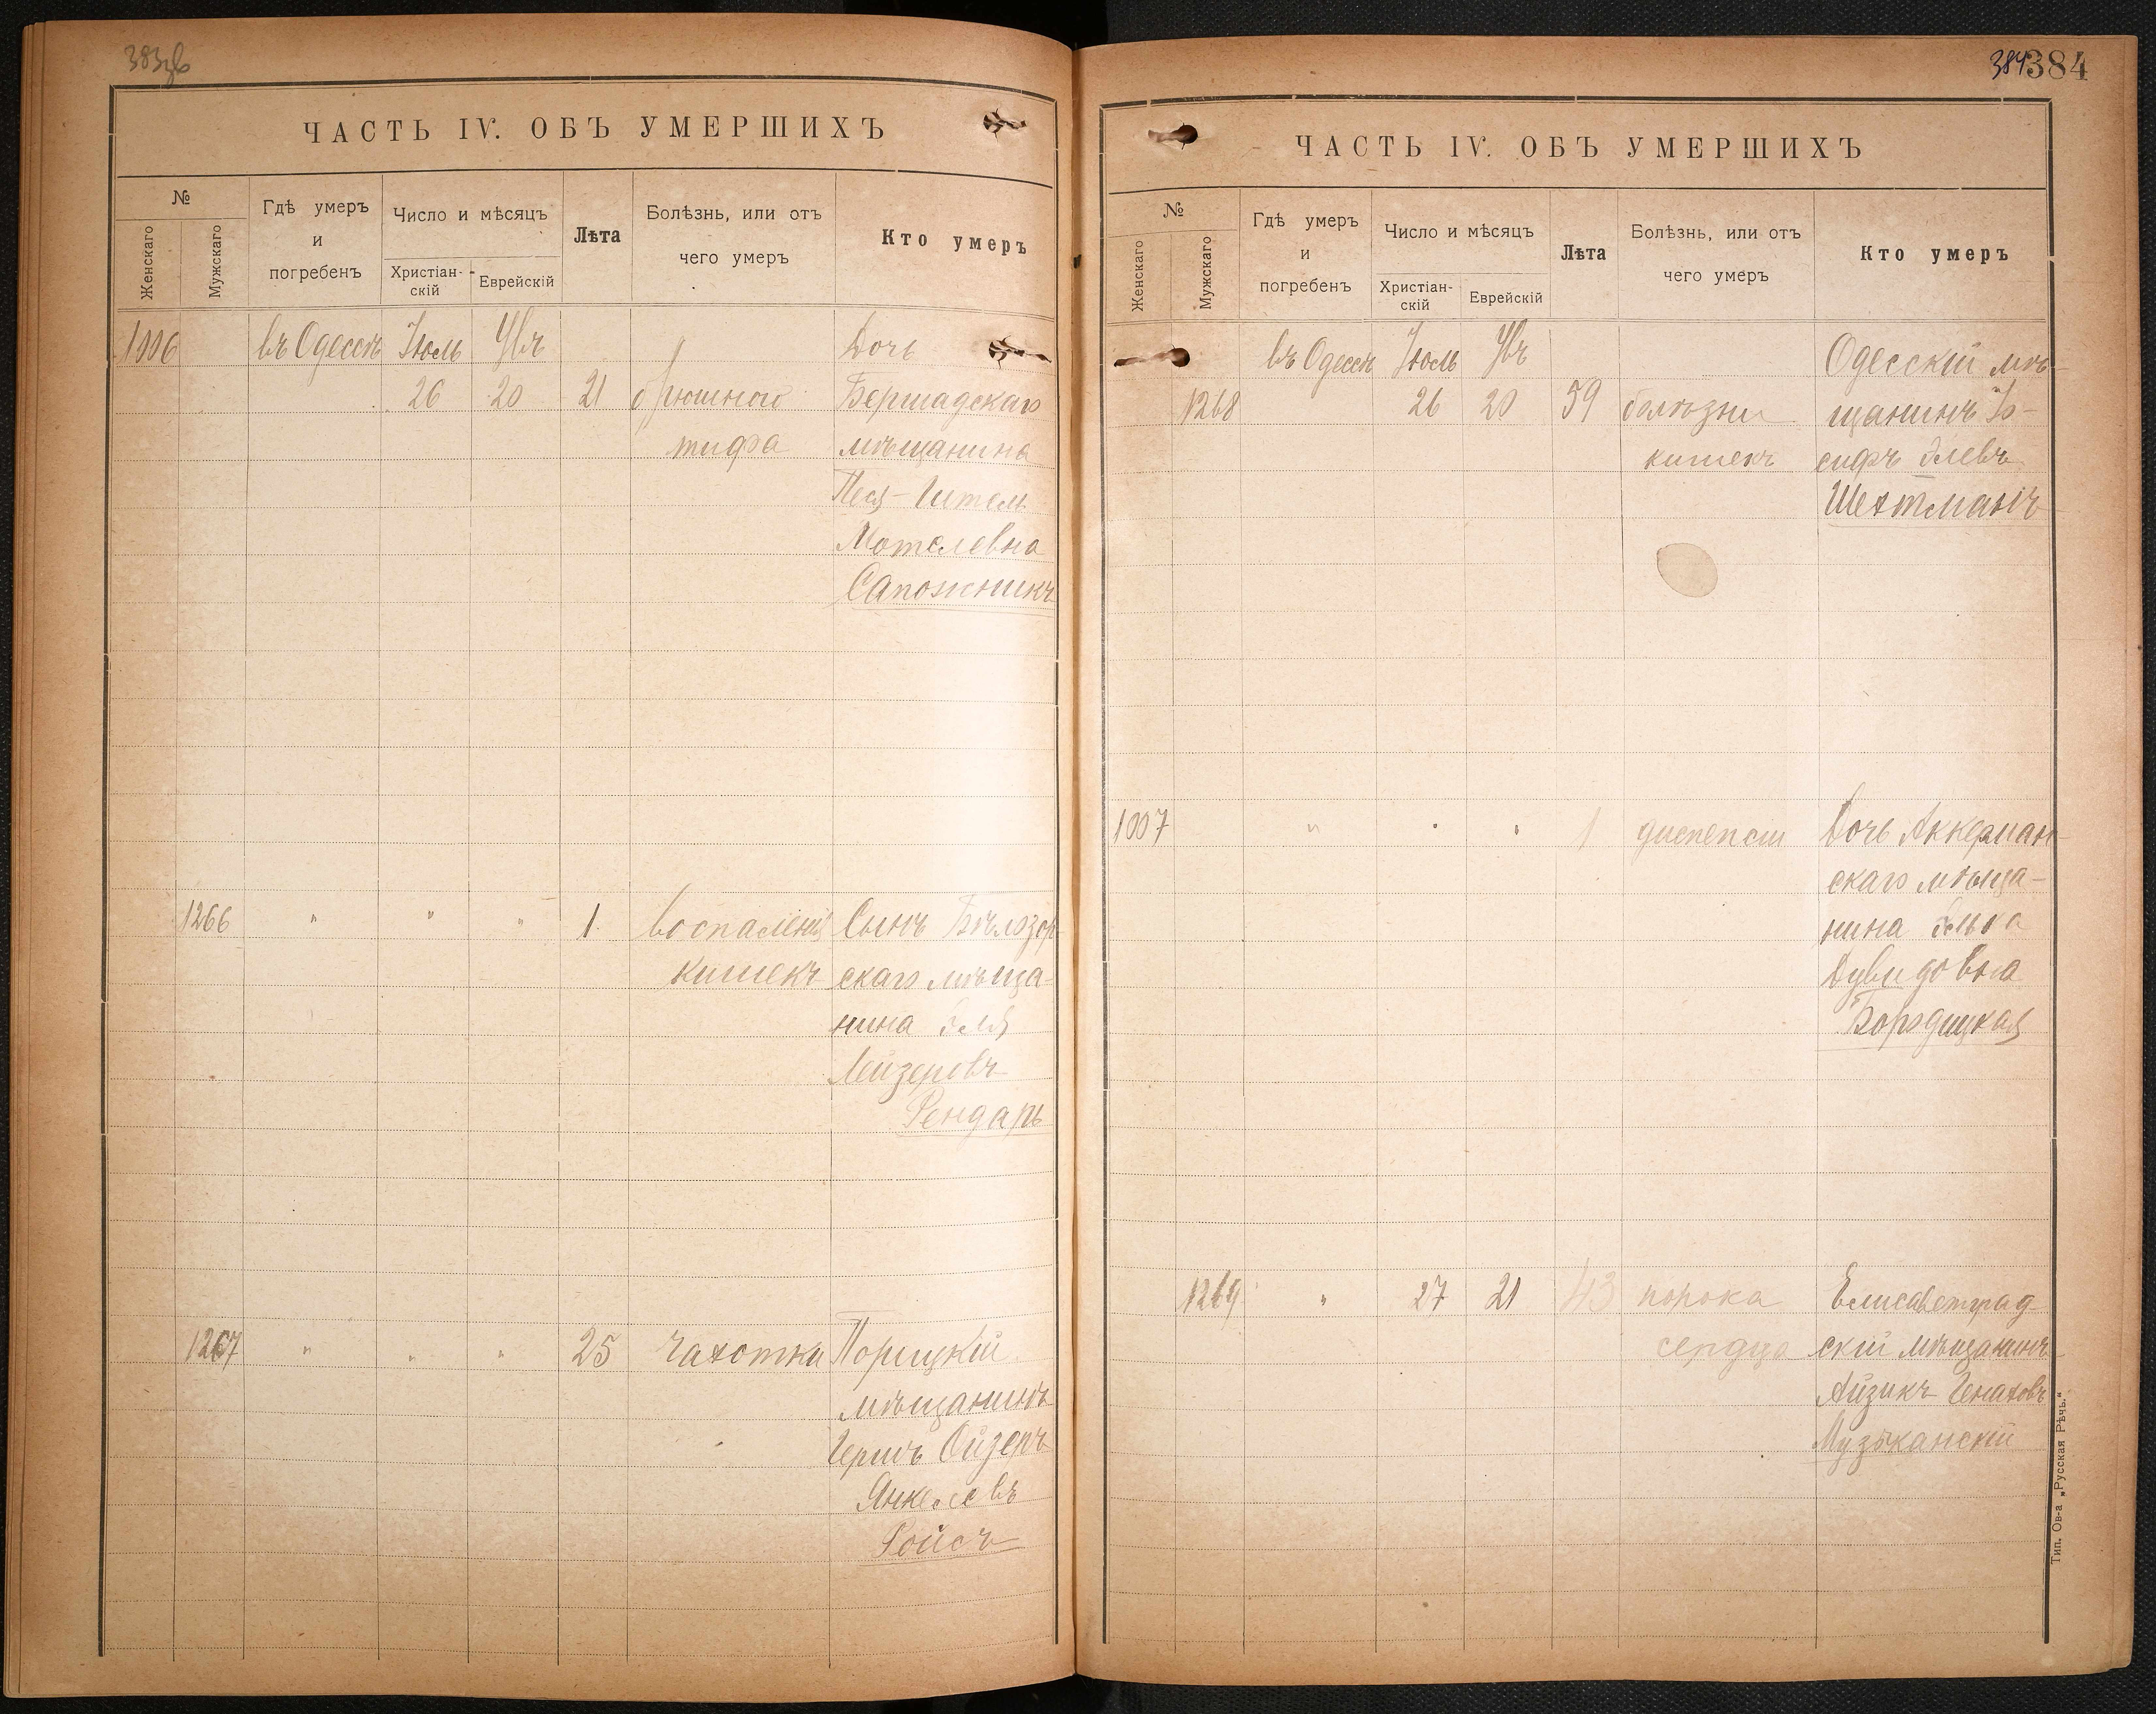 383 об
ЧАСТЬ IV. ОБЪ УМЕРШИХЪ
№
Женскаго
Мужскаго
Гдѣ умеръ
и
погребенъ
Число и мѣсяцъ
Христіан-
скій
Еврейскій
Лѣта
Болѣзнь, или отъ
чего умеръ
Кто умеръ
1006 въ Одессѣ Іюль Увъ Дочь
26 20 21 брюшного Бершадскаго
тифа мѣщанина
Песя-Ител
Мотелевна
Сапожникъ
1266 " " " 1 воспаленія Сынъ Бѣлозор
кишекъ скаго мѣща-
нина Эля
Лейзеровъ
Рендарь
1267 " " " 25 чахотки Порицкій
мѣщанинъ
Гершъ Ойзеръ
Янкелевъ
Ройсъ
384 384
ЧАСТЬ IV. ОБЪ УМЕРШИХЪ
№
Женскаго
Мужскаго
Гдѣ умеръ
и
погребенъ
Число и мѣсяцъ
Христіан-
скій
Еврейскій
Лѣта
Болѣзнь, или отъ
чего умеръ
Кто умеръ
въ Одессѣ Іюль Увъ Одесскій мѣ-
1268 26 20 59 болѣзни щанинъ Іо-
кишекъ сифъ Элевъ
Шехтманъ
1007 " " " 1 диспепсіи Дочь Аккерман
скаго мѣща-
нина Элька
Дувидовна
Бородицкая
1269 " 27 21 43 порока Елисаветград-
сердца скій мѣщанинъ
Айзикъ Генаховъ
Музыканскій
Тип. Ов-а „Русская Рѣчь."